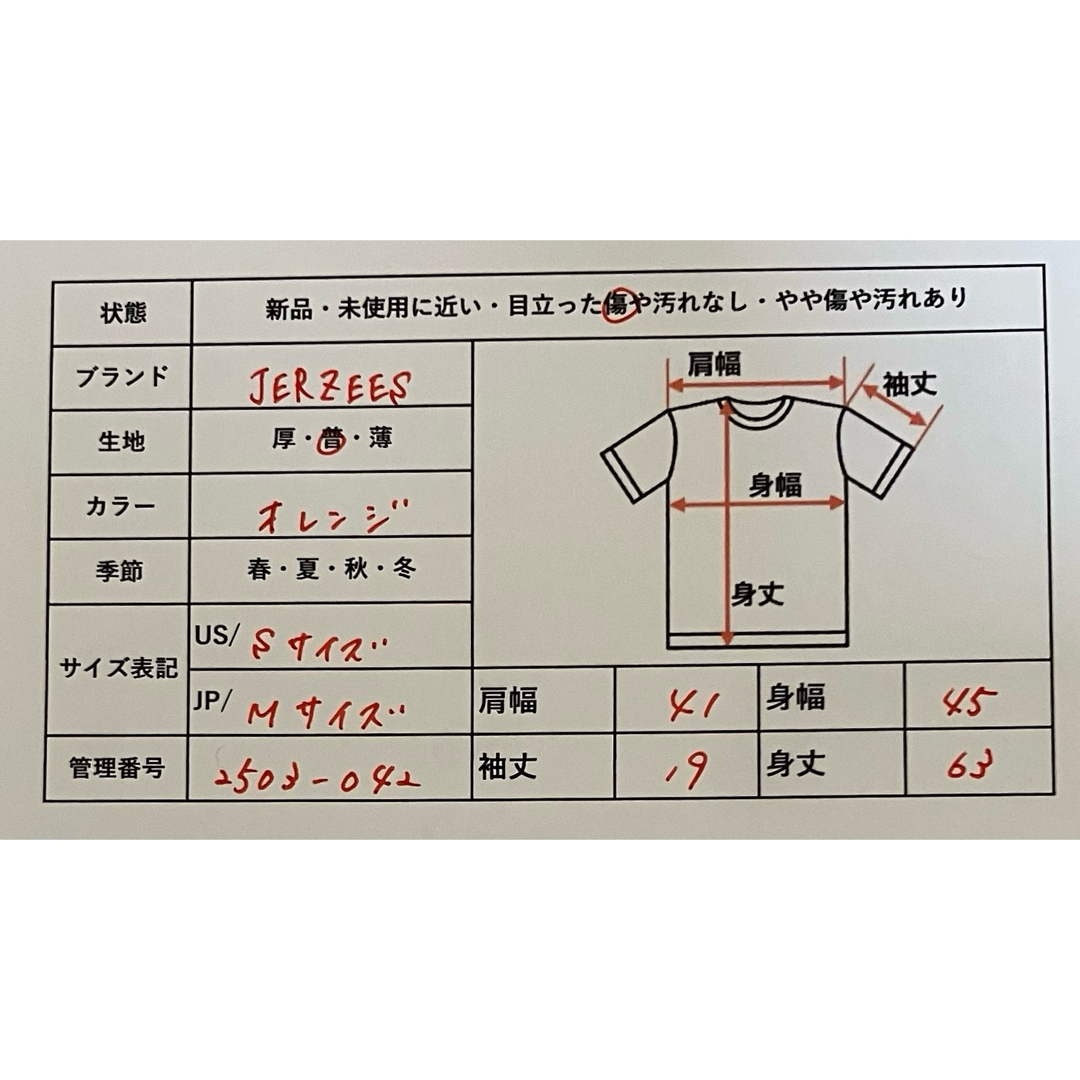 状態 新品・未使用に近い・目立った傷や汚れなし・やや傷や汚れあり
ブランド JERZEES
生地 厚・普・薄
カラー オレンジ
季節 春・夏・秋・冬
サイズ表記
US/ Sサイズ
JP/ Mサイズ
管理番号 2503-042
肩幅
袖丈
身幅
身丈
肩幅 41 身幅 45
袖丈 19 身丈 63